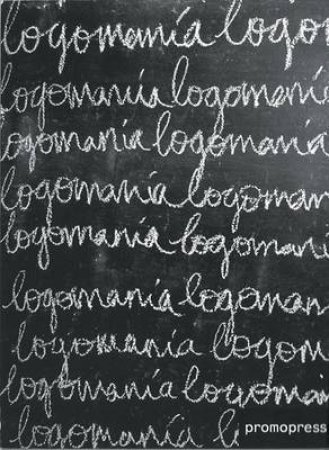 logomanía logo
logomanía logomaní
ogomanía logomanía
logomanía logoman
logomanía logomani
logomanía logoman
logomanía logom
logomanía logomai
logomanía l
promopress